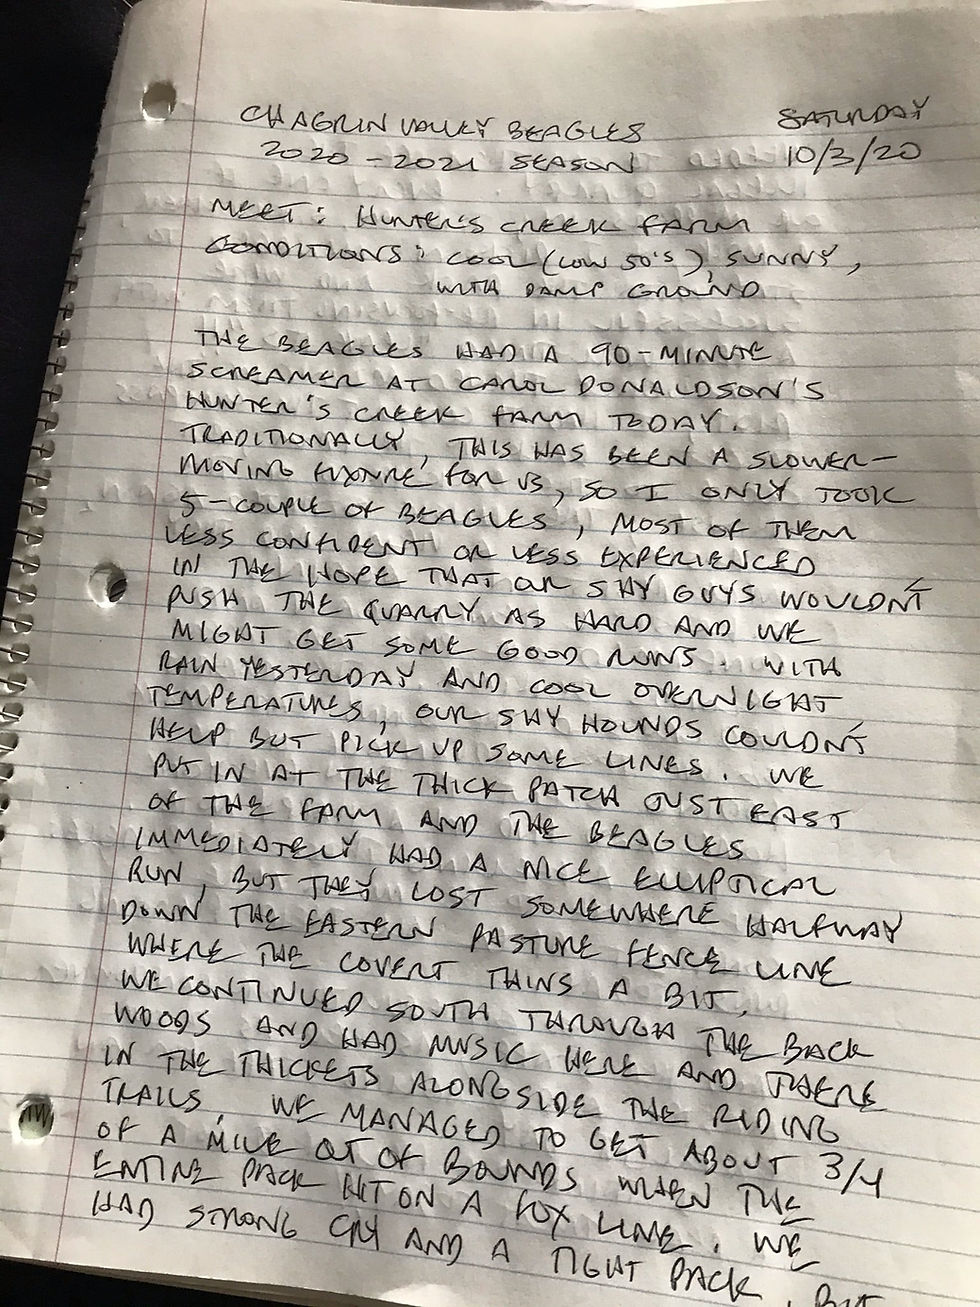 CHAGRIN VALLEY BEAGLES SATURDAY
2020-2021 SEASON 10/3/20
MEET: HUNTER'S CREEK FARM
CONDITIONS: COOL (LOW 50'S), SUNNY,
WITH DAMP GROUND
THE BEAGLES HAD A 90-MINUTE
SCREAMER AT CAROL DONALDSON'S
HUNTER'S CREEK FARM TODAY.
TRADITIONALLY, THIS HAS BEEN A SLOWER-
MOVING FIXTURE FOR US, SO I ONLY TOOK
5-COUPLE OF BEAGLES, MOST OF THEM
LESS CONFIDENT OR LESS EXPERIENCED
IN THE HOPE THAT OUR SHY GUYS WOULDN'T
PUSH THE QUARRY AS HARD AND WE
MIGHT GET SOME GOOD RUNS. WITH
RAIN YESTERDAY AND COOL OVERNIGHT
TEMPERATURES, OUR SHY HOUNDS COULDN'T
HELP BUT PICK UP SOME LINES. WE
PUT IN AT THE THICK PATCH JUST EAST
OF THE FARM AND THE BEAGLES
IMMEDIATELY HAD A NICE ELLIPTICAL
RUN, BUT THEY LOST SOMEWHERE HALFWAY
DOWN THE EASTERN PASTURE FENCE LINE
WHERE THE COVERT THINS A BIT.
WE CONTINUED SOUTH THROUGH THE BACK
WOODS AND HAD MUSIC HERE AND THERE
IN THE THICKETS ALONGSIDE THE RIDING
TRAILS. WE MANAGED TO GET ABOUT 3/4
OF A MILE OUT OF BOUNDS WHEN THE
ENTIRE PACK HIT ON A FOX LINE. WE
HAD STRONG CRY AND A TIGHT PACK, BUT